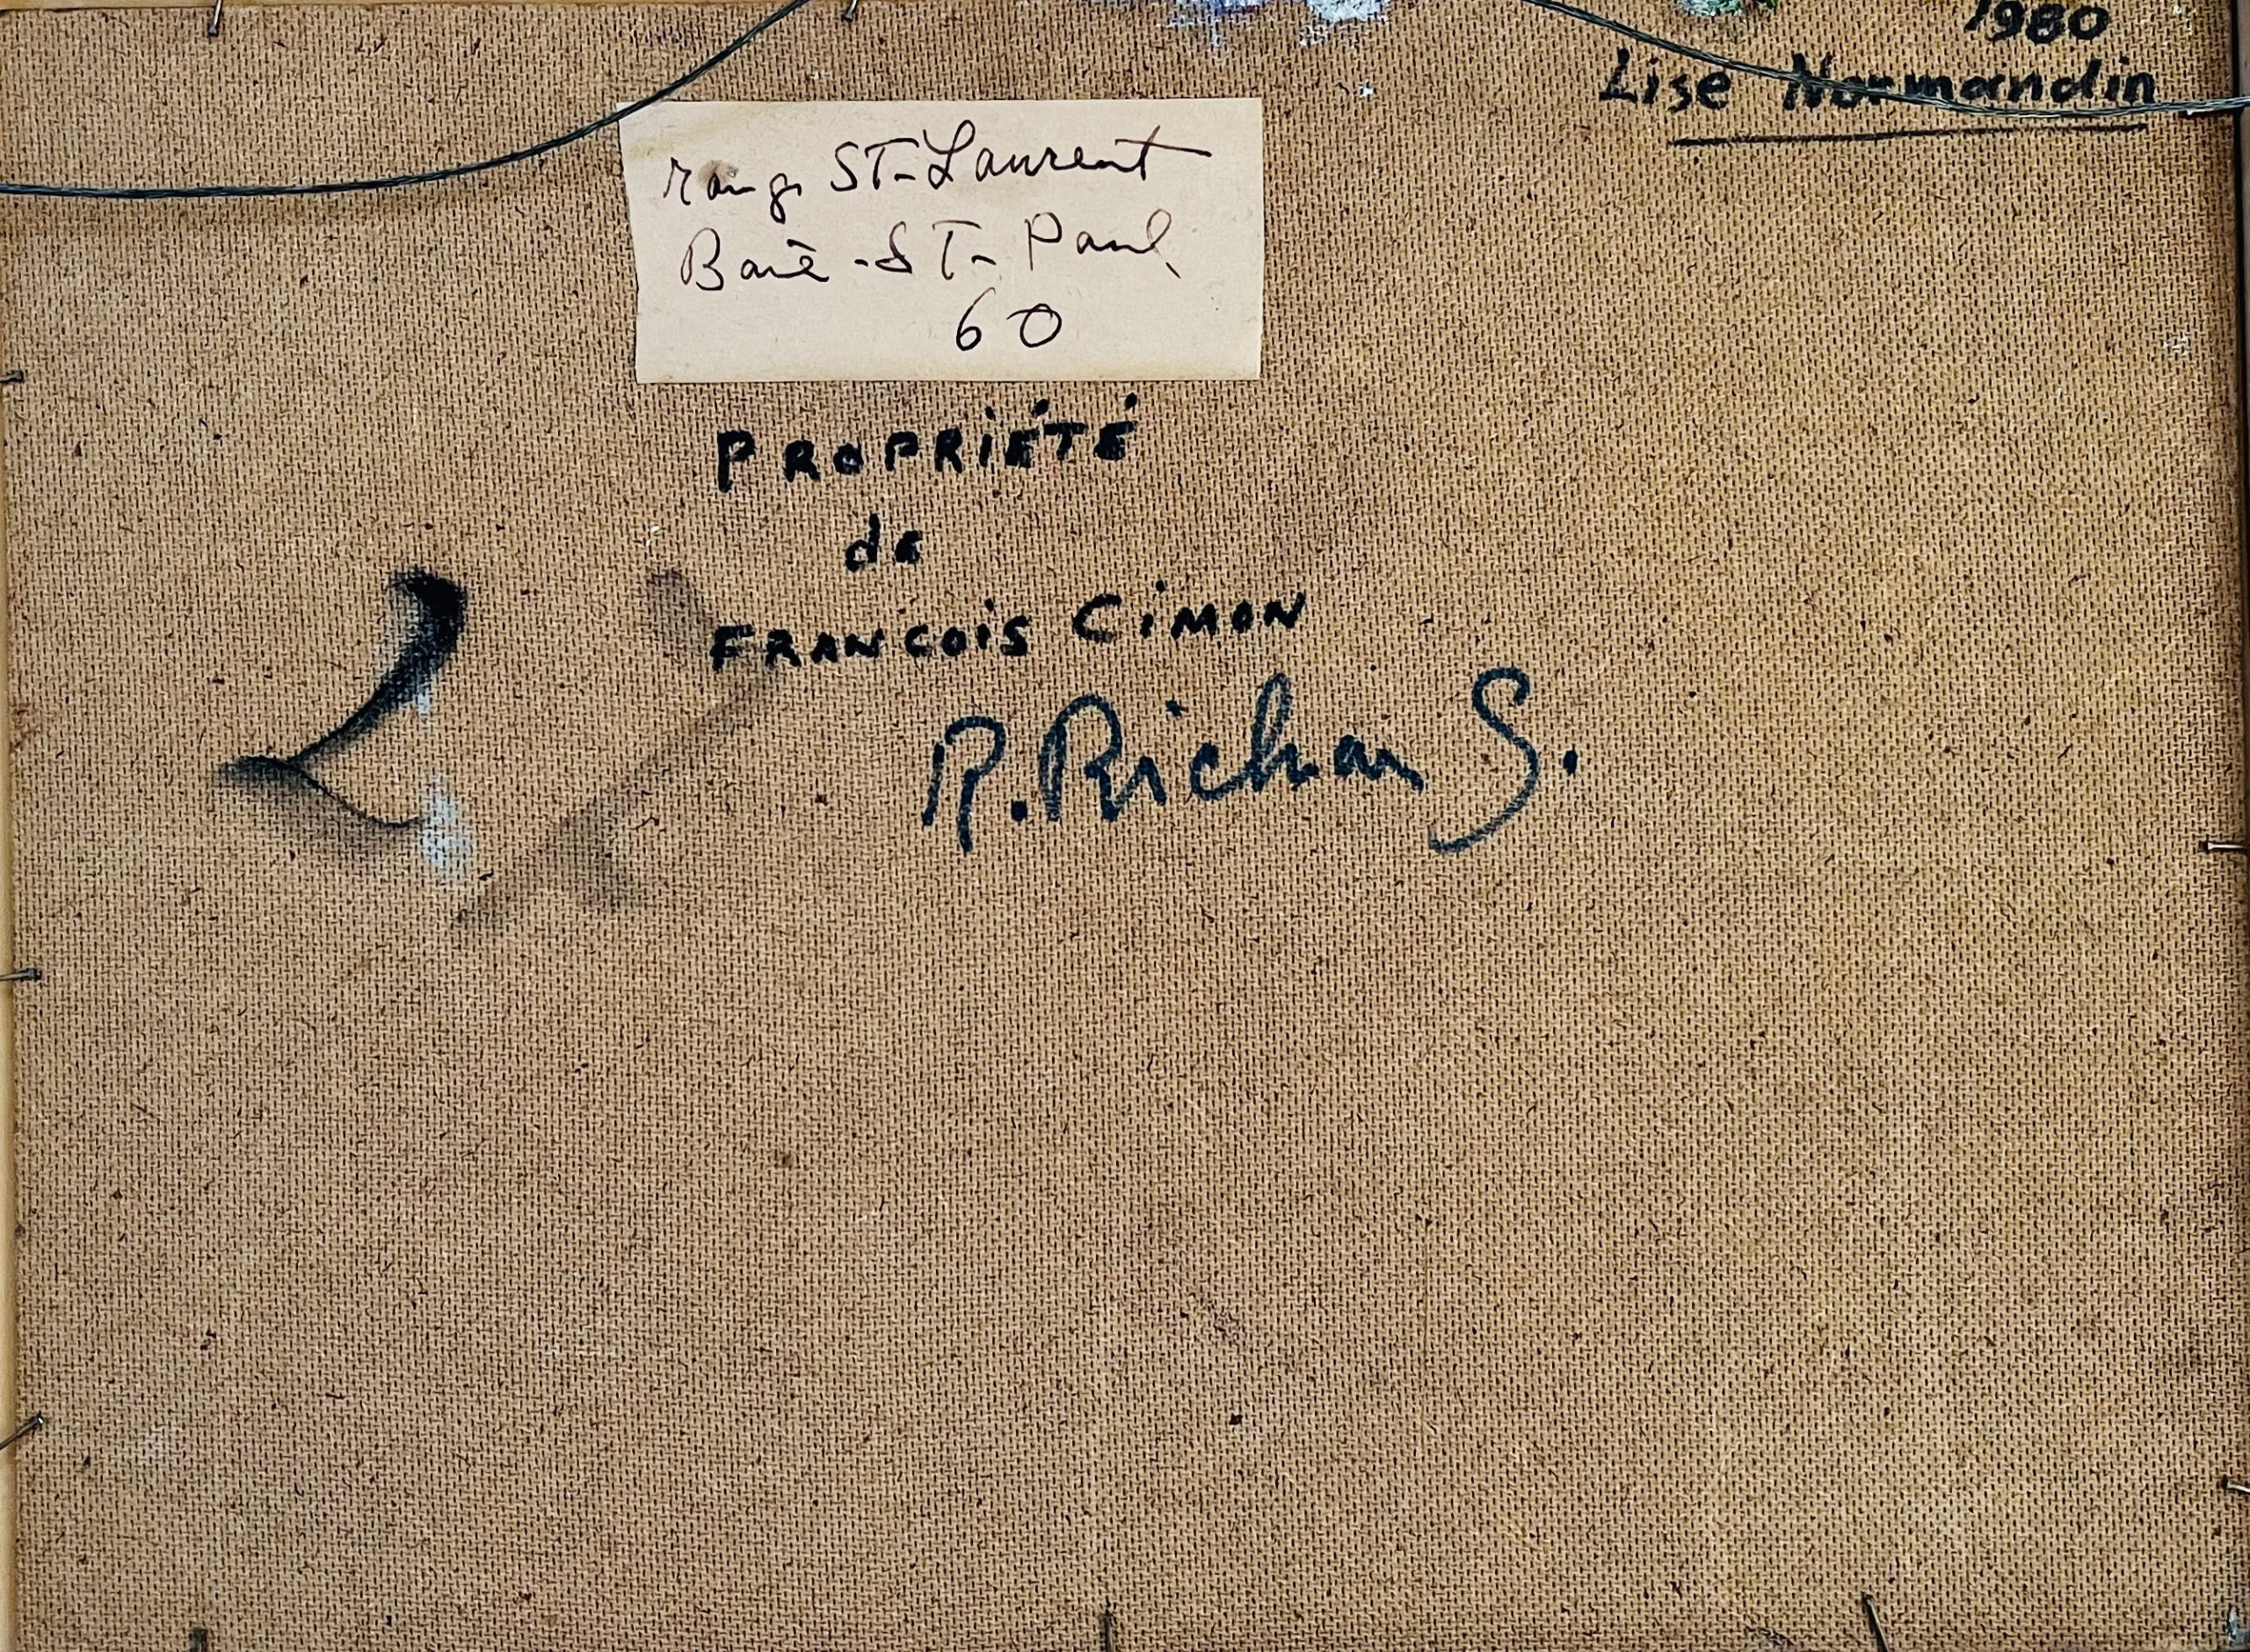 1980
Lise Normandin
rang ST-Laurent
Baie-ST-Paul
60
PROPRIÉTÉ
de
FRANCOIS CIMON
R. Richar S.